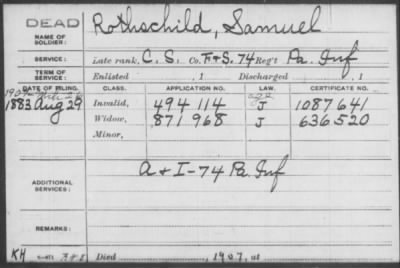 DEAD
Rothschild, Samuel
NAME OF SOLDIER:
SERVICE: Late rank, C. S. Co. F & S. 74 Reg't Pa. Inf
TERM OF SERVICE: Enlisted , 1 Discharged , 1
DATE OF FILING. CLASS. APPLICATION NO. LAW. CERTIFICATE NO.
1883 Aug 29 Invalid, 494114 J 1087641
Widow, 871968 J 636520
Minor,
ADDITIONAL SERVICES: A & I - 74 Pa. Inf
REMARKS:
KH
Died , 1907, at